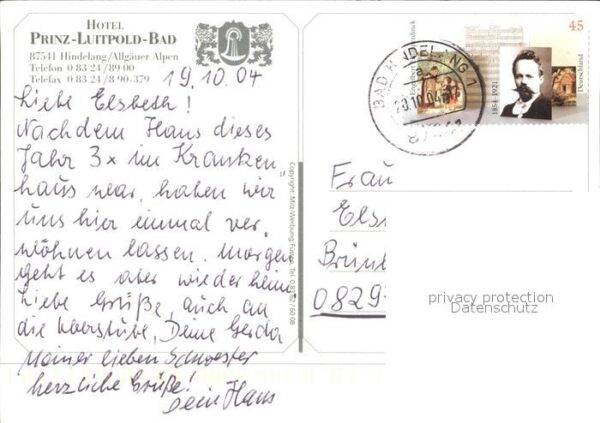 HOTEL
PRINZ-LUITPOLD-BAD
87541 Hindelang/Allgäuer Alpen
Telefon 0 83 24/89 00
Telefax 0 83 24/8 90-379
19.10.04
Liebe Elsbeth!
Nachdem Hans dieses
Jahr 3x im Kranken
haus war, haben wir
uns hier einmal ver,
wöhnen lassen. Morgen
geht es aber wieder heim
Liebe Grüße, auch an
die Deine Gerda
Meiner lieben Schwester
herzliche Grüße!
Dein Hans
Copyright: Mitz-Werbung, Tel.
45
Engelbert Humperdinck
1854-1921
Deutschland
BAD HINDELANG 1
.10.04
Frau
Els
Brün
0829
privacy protection
Datenschutz